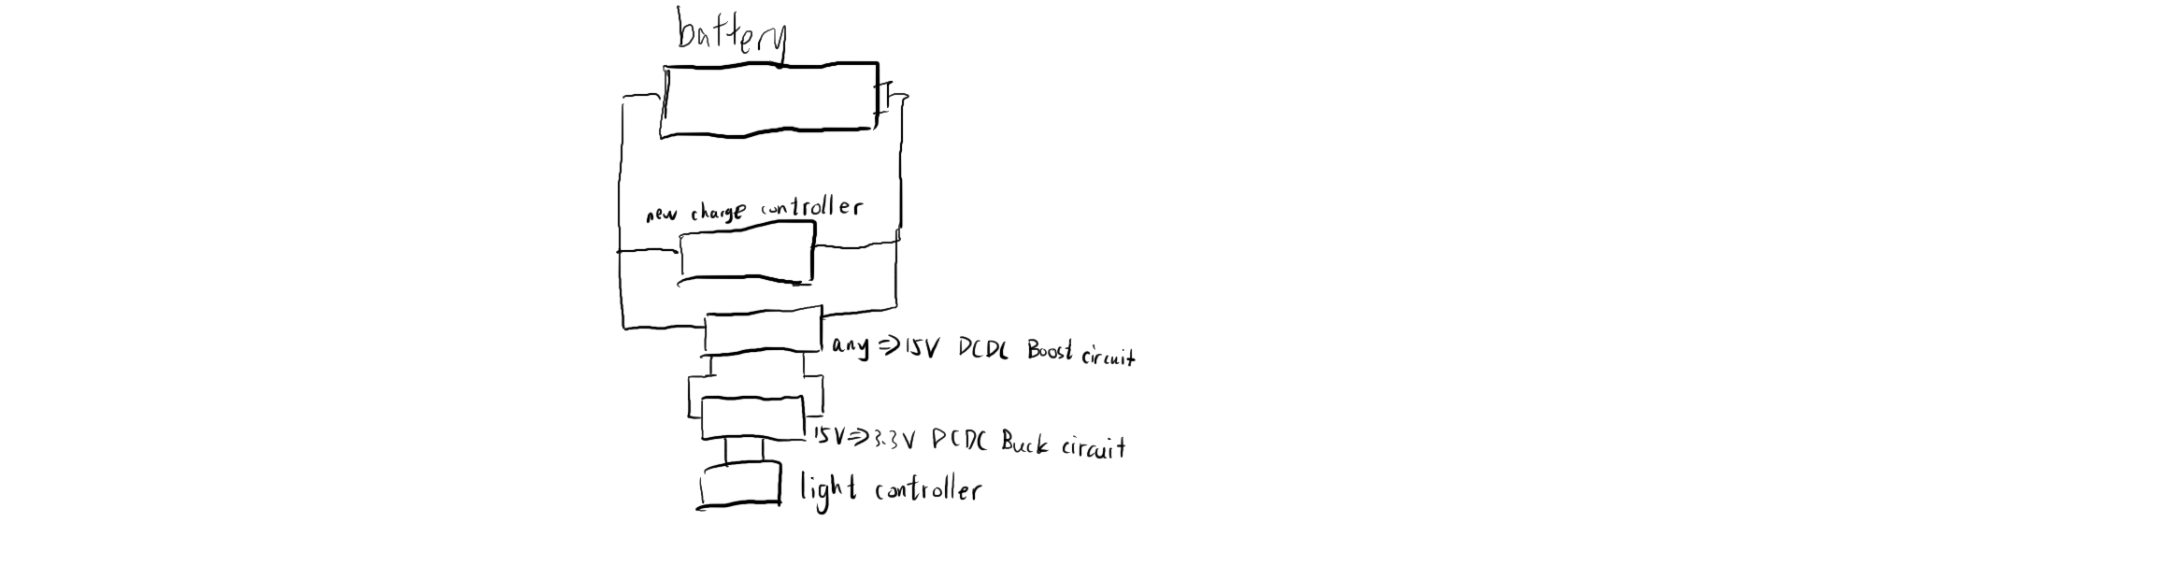 battery
new charge controller
any ⇒ 15V DCDC Boost circuit
15V ⇒ 3.3V DCDC Buck circuit
light controller